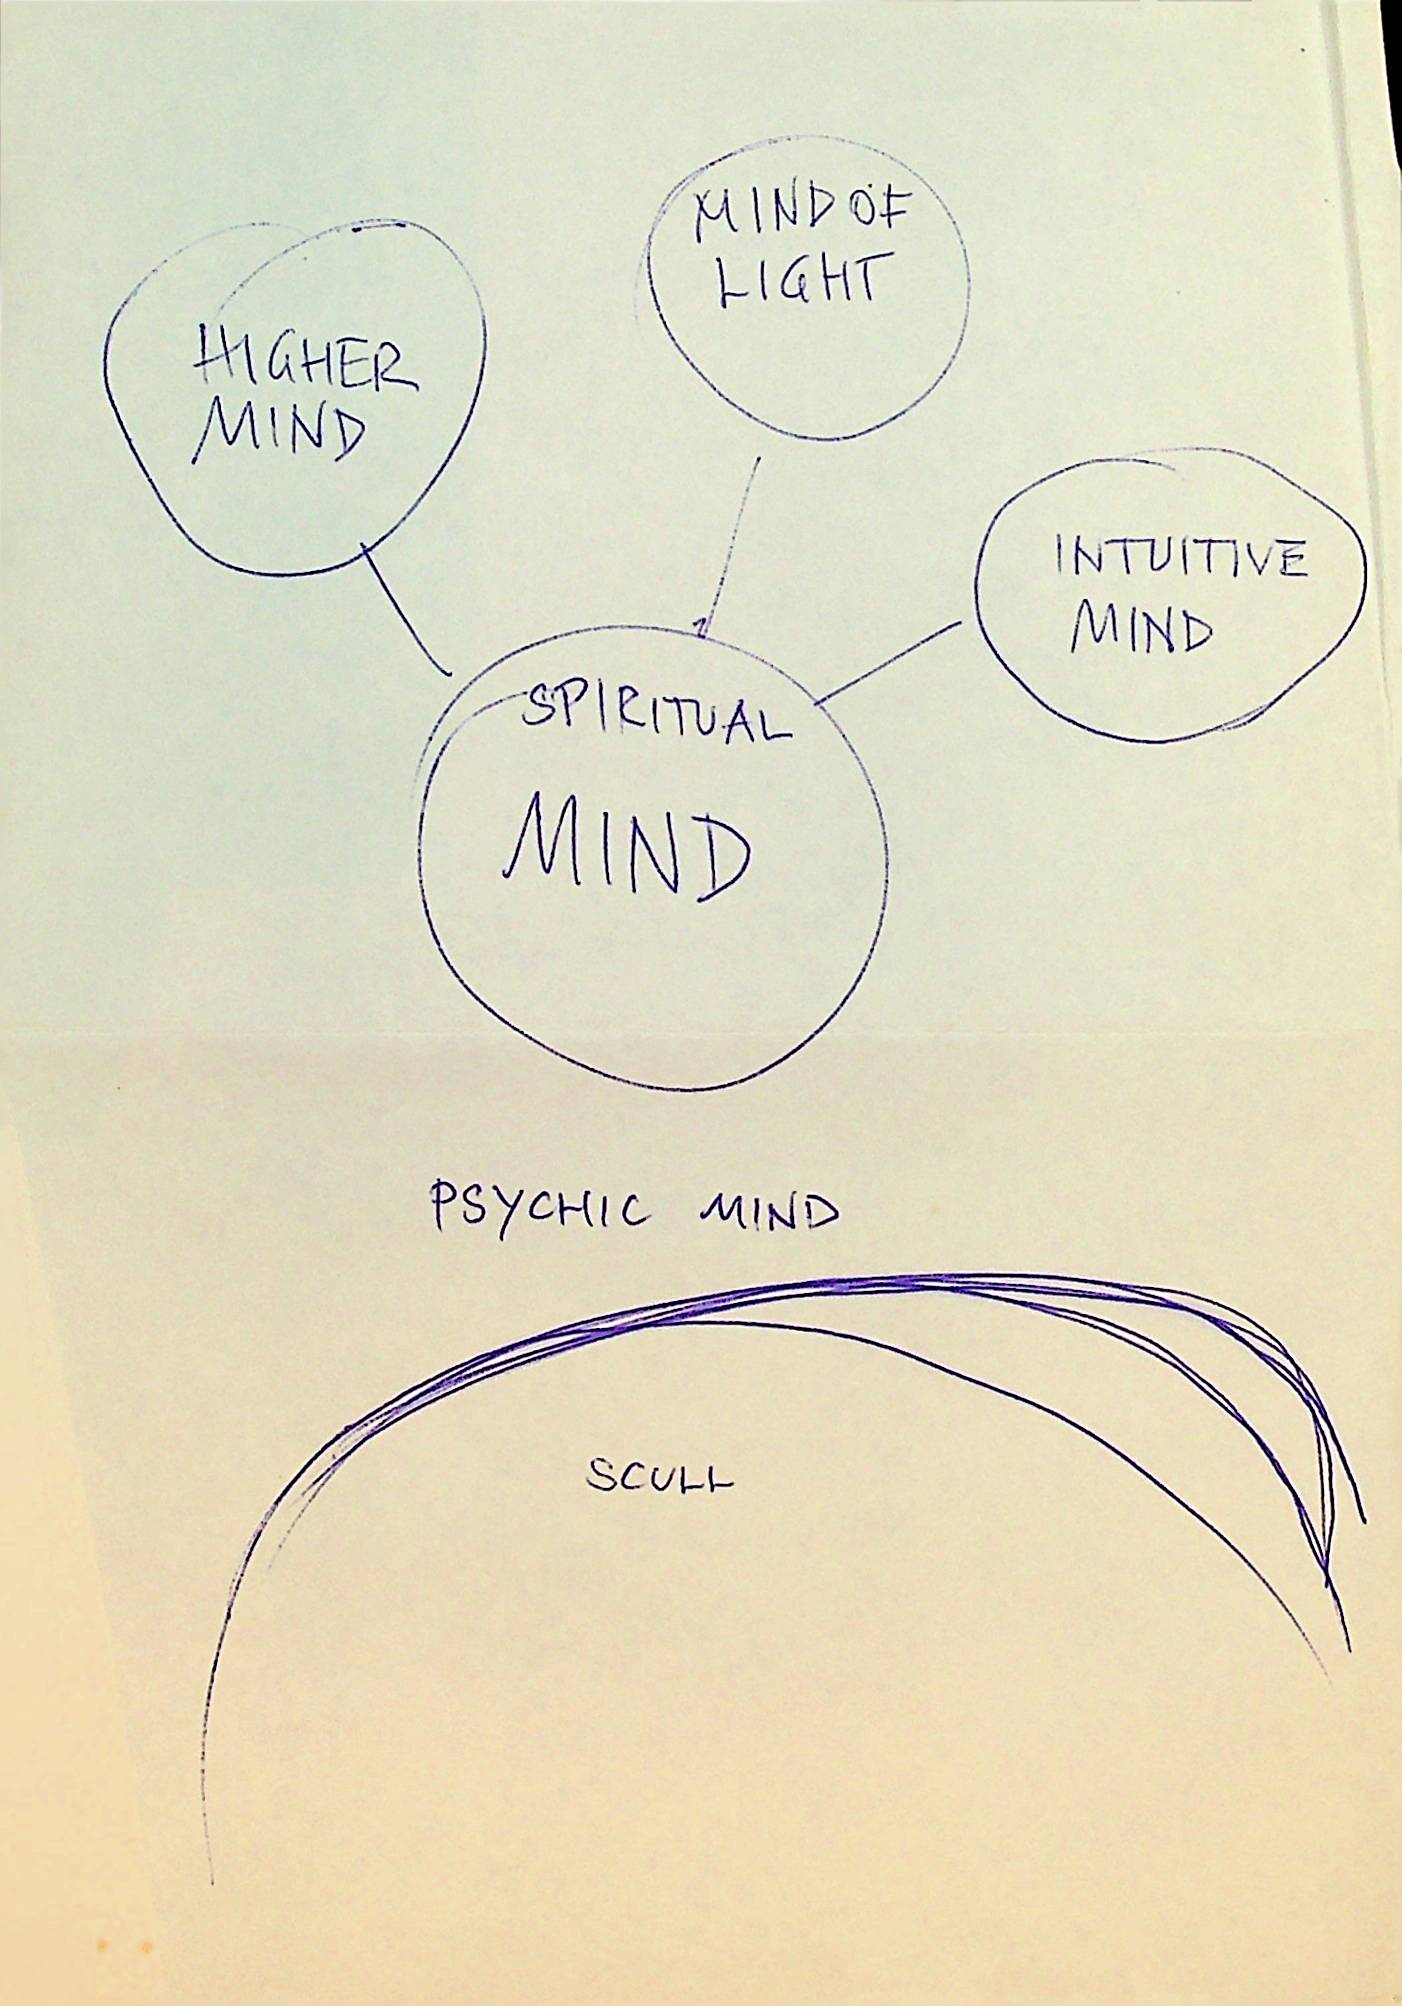 MIND OF
LIGHT
HIGHER
MIND
INTUITIVE
MIND
SPIRITUAL
MIND
PSYCHIC MIND
SCULL